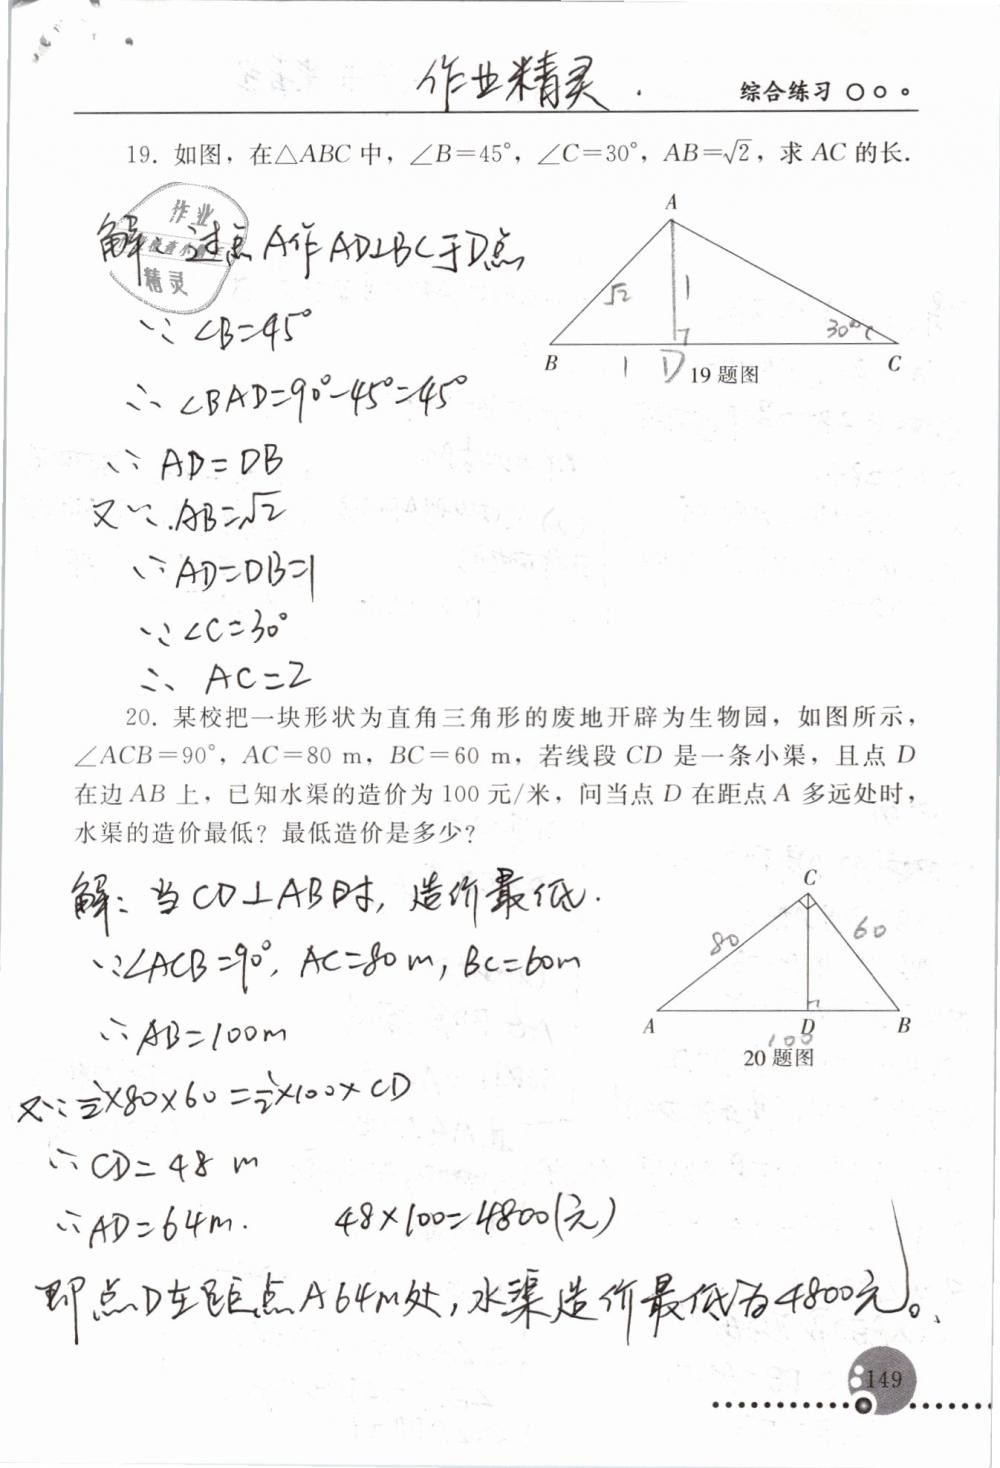 作业精灵.
综合练习
19. 如图，在△ABC 中，∠B=45°，∠C=30°，AB=√2，求 AC 的长.
作业
精灵
解：过点A作AD⊥BC于D点
∵ ∠B=45°
∴ ∠BAD=90°-45°=45°
∴ AD=DB
又∵ AB=√2
∴ AD=DB=1
∵ ∠C=30°
∴ AC=2
A
√2
1
30°
B
1
D
C
19 题图
20. 某校把一块形状为直角三角形的废地开辟为生物园，如图所示，
∠ACB=90°，AC=80 m，BC=60 m，若线段 CD 是一条小渠，且点 D
在边 AB 上，已知水渠的造价为 100 元/米，问当点 D 在距点 A 多远处时，
水渠的造价最低？最低造价是多少？
解：当CD⊥AB时，造价最低.
∵∠ACB=90°，AC=80m，BC=60m
∴ AB=100m
又∵½×80×60=½×100×CD
∴ CD=48 m
∴ AD=64m. 48×100=4800(元)
即点D在距点A64m处，水渠造价最低为4800元。
C
80
60
A
D
B
100
20 题图
149